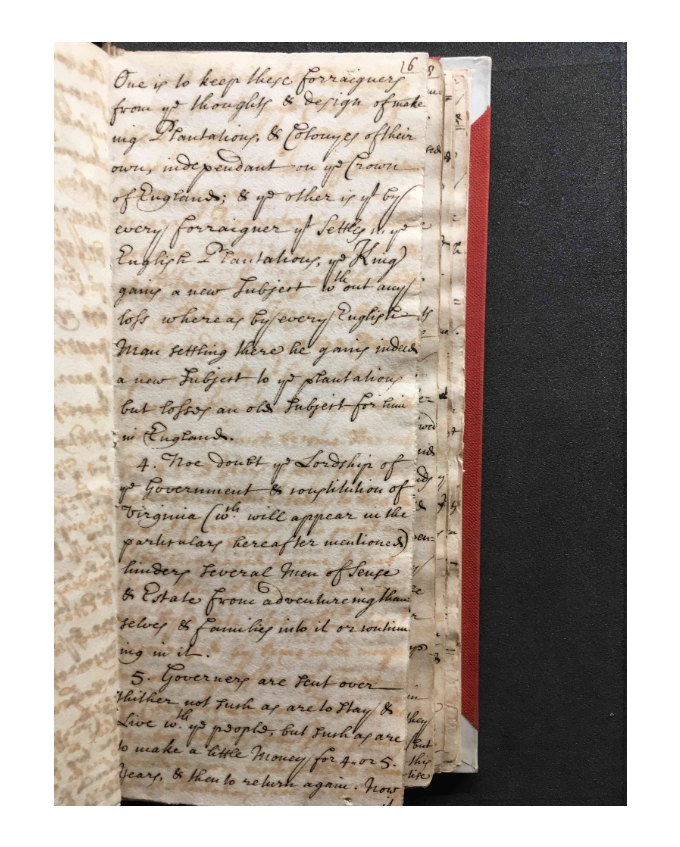 16
One is to keep these forraigners
from ye thoughts & design of make
ing Plantations, & Colonyes of their
own, independant on ye Crown
of England; & ye other is yt by
every forraigner yt Settles in ye
English Plantations, ye King
gains a new Subject wthout any
loss whereas by every English
Man settling there he gains indeed
a new Subject to ye plantations
but losses an old Subject for him
in England.
4. Noe doubt ye Lordship of
ye Government & constitution of
Virginia (wch will appear in the
particulars hereafter mentioned)
hinders several Men of Sense
& Estate from adventureing them
selves & families into it or continu
ing in it.
5. Governers are sent over
thither not such as are to stay &
Live wth ye people, but such as are
to make a little Money for 4. or 5.
years, & then to return again. Now